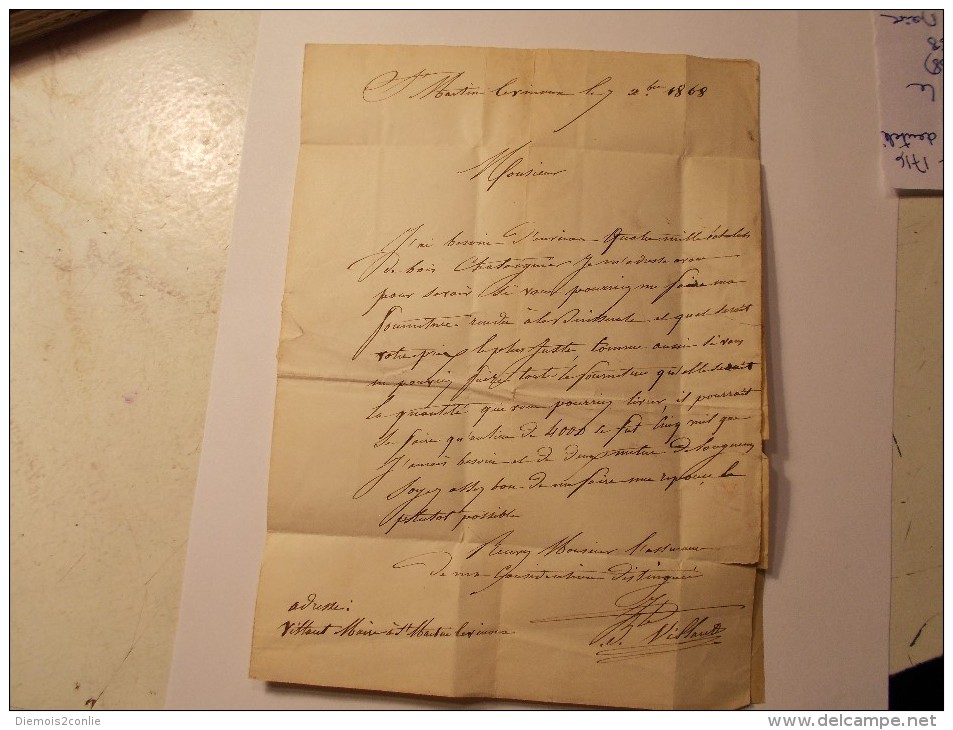 St Martin le 7 2bre 1868
Monsieur
J'ai besoin d'environ quatre mille échalats
de bois Chataignier je m'adresse a vous
pour savoir si vous pourriez me faire ma
fourniture rendue à la et quel serait
votre prix le plus juste, comme aussi si vous
me pourriez faire toute la fourniture qu'elle serait
la quantité que vous pourriez livrer, il pourrait
se faire qu'au lieu de 4000 ce fut cinq mil que
J'aurais besoin et de deux mètre de longueur
Soyez assez bon de me faire une réponse la
plutot possible
Recevez Monsieur l'assurance
de ma Considération distinguée
adresse:
Villaud Maire à St Martin
Villaud
Noir
68
(68)
Le
dentelé
Diemois2conlie
www.delcampe.net